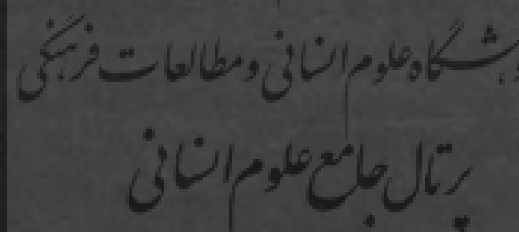 علوم انسانی و مطالعات فرهنگی
پرتال جامع علوم انسانی